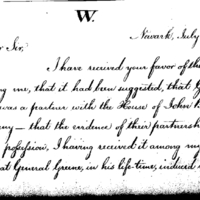 W.
Newark, July
r Sir,
I have received your favor of th
ing me, that it had been suggested, that G
was a partner with the House of John B
ny — that the evidence of their partnersh
profession, I having received it among my
at General Greene, in his life-time, induced